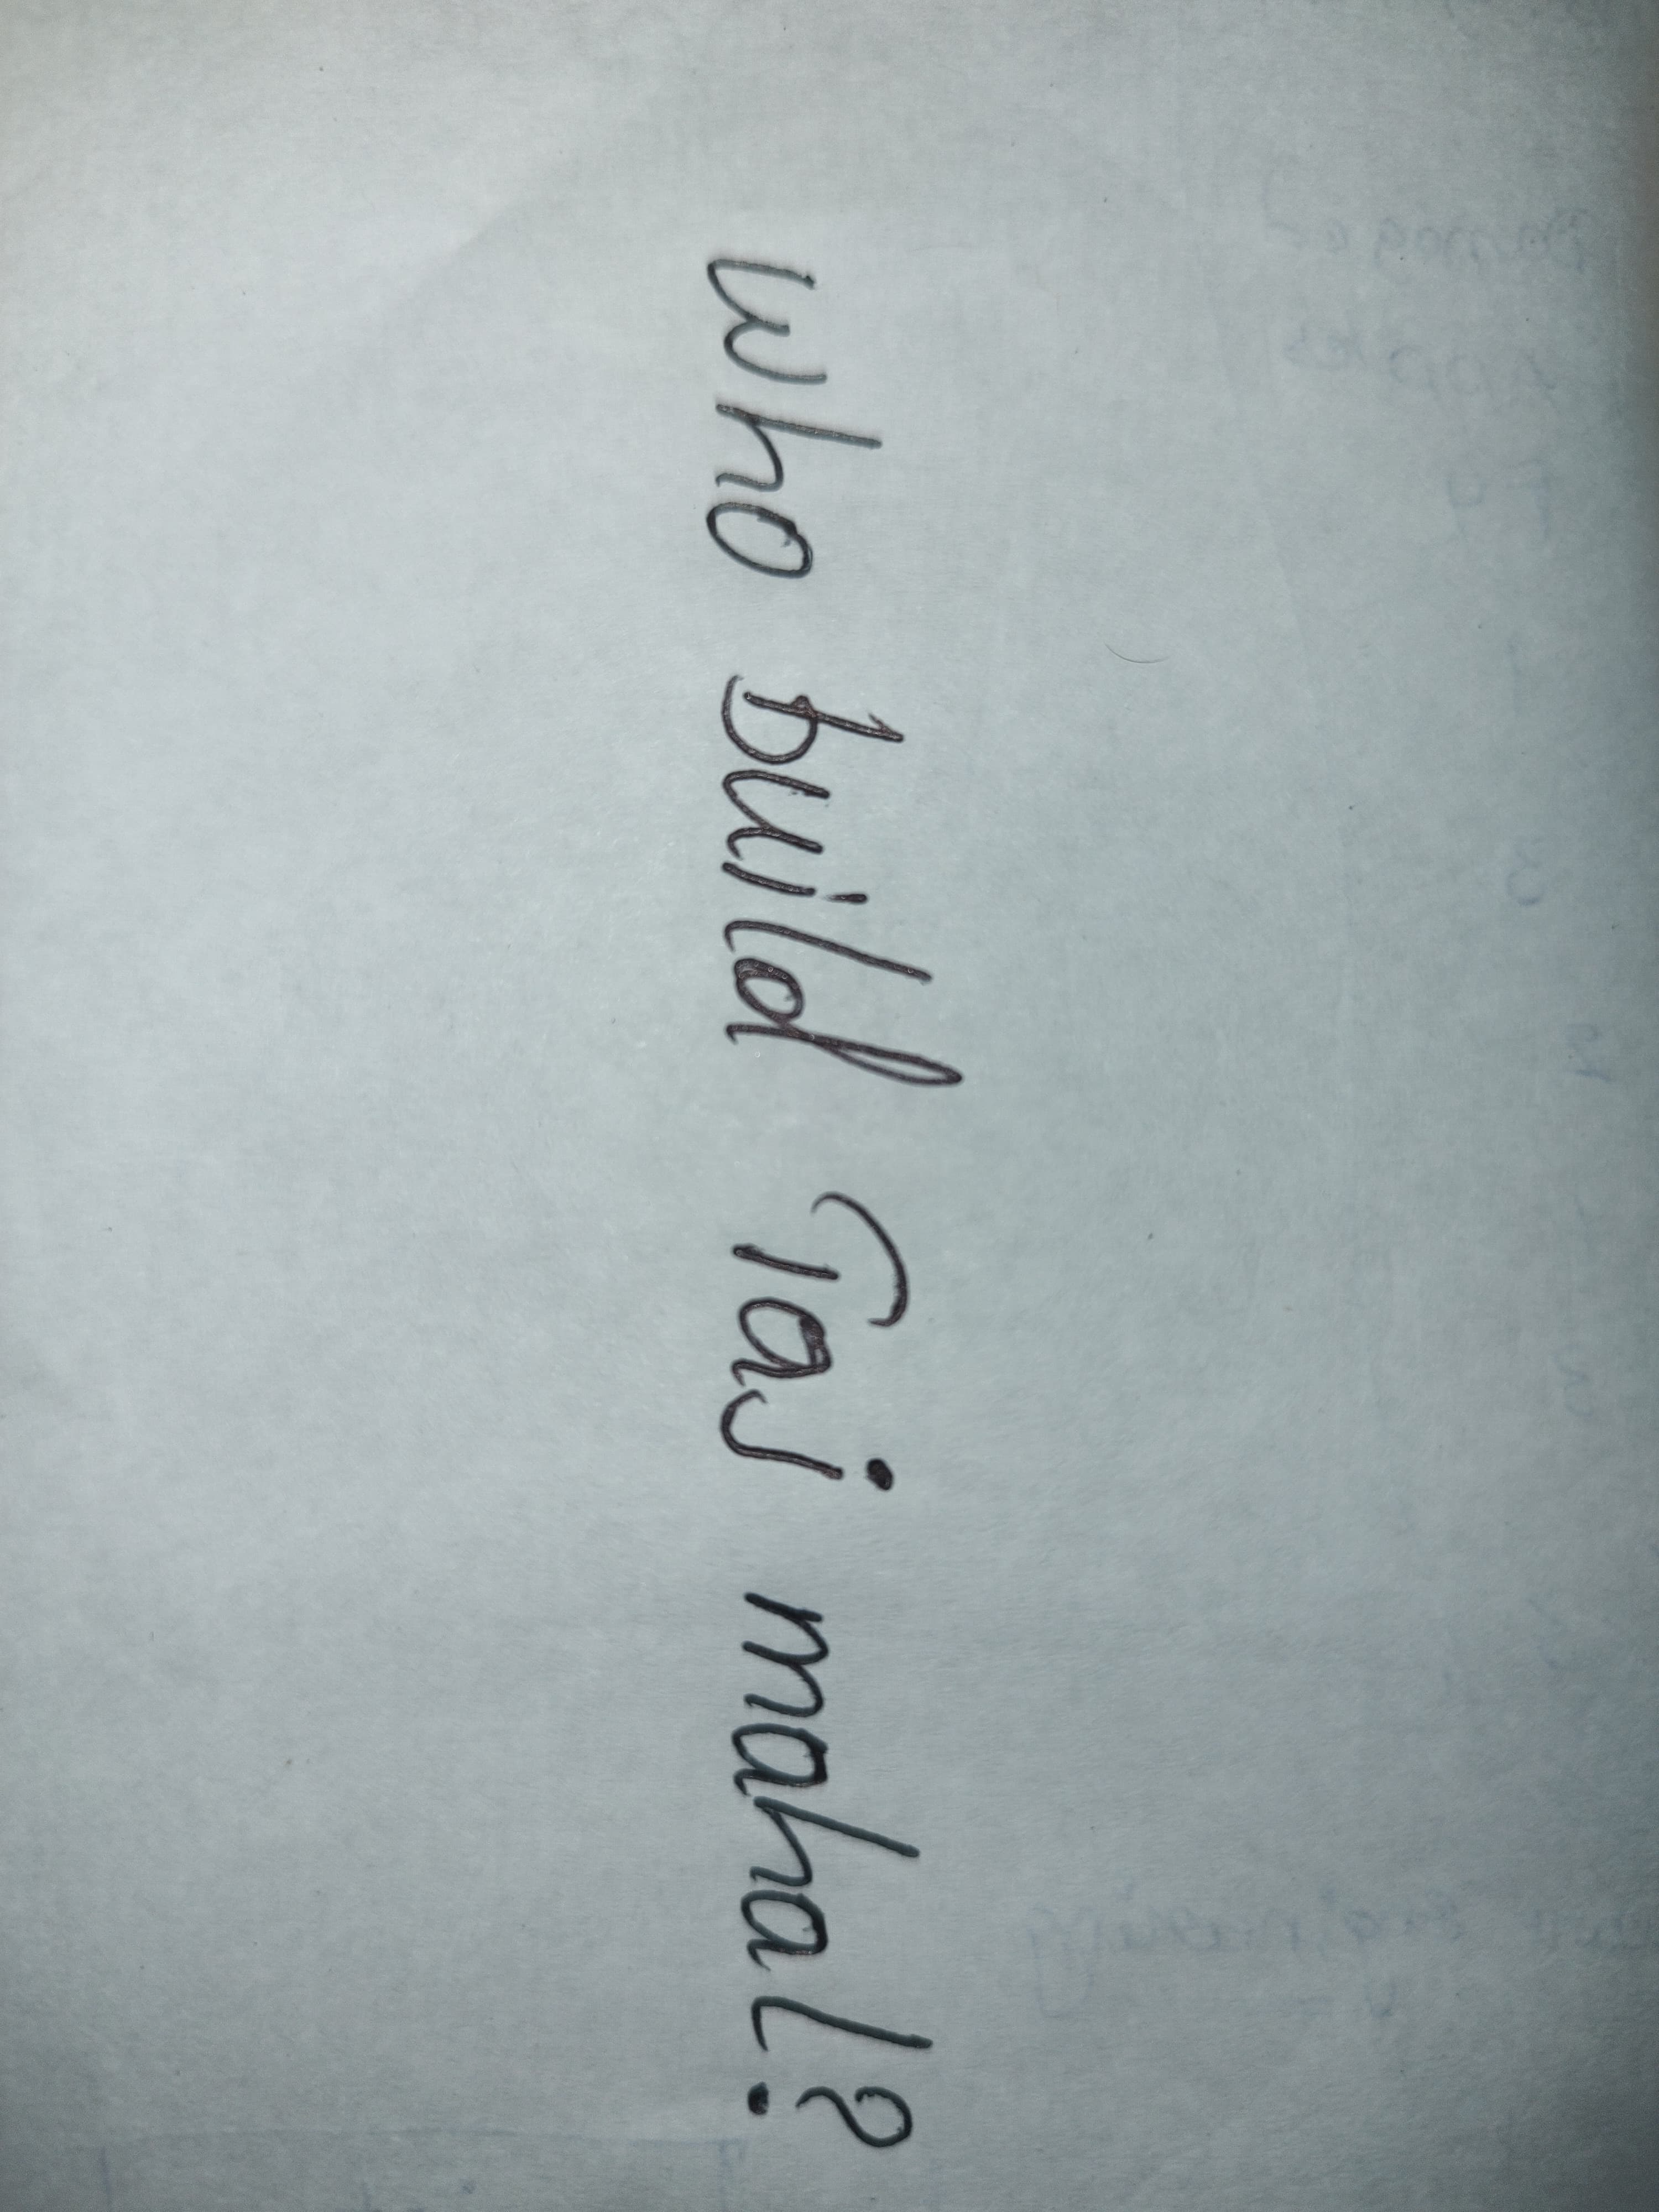 who build Taj mahal?